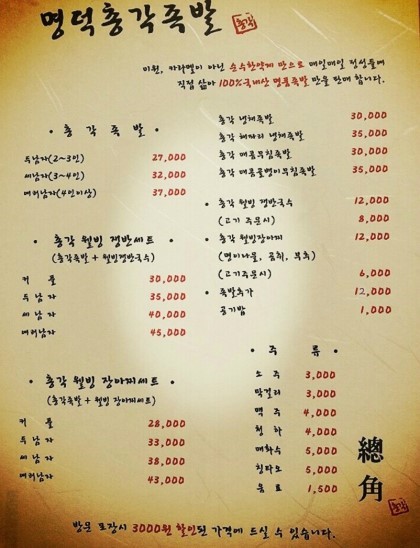 명덕총각족발
총각
미원, 카라멜이 아닌 순수한약재 만으로 매일매일 정성들여
직접 삶아 100%국내산 명품족발 만을 판매 합니다.
• 총각족발 •
두남자(2~3인) 27,000
세남자(3~4인) 32,000
여러남자(4인이상) 37,000
• 총각 웰빙 쟁반세트 •
(총각족발 + 웰빙쟁반국수)
커 플 30,000
두 남 자 35,000
세 남 자 40,000
여러남자 45,000
• 총각 웰빙 장아찌세트 •
(총각족발 + 웰빙 장아찌세트)
커 플 28,000
두 남 자 33,000
세 남 자 38,000
여러남자 43,000
총각 냉채족발 30,000
총각 해파리 냉채족발 35,000
총각 매콤무침족발 30,000
총각 매콤골뱅이무침족발 35,000
• 총각 웰빙 쟁반국수 12,000
(고기 주문시) 8,000
• 총각 웰빙장아찌 12,000
(명이나물, 곰취, 부추)
(고기주문시) 6,000
• 족발추가 12,000
공기밥 1,000
• 주 류 •
소 주 3,000
막걸리 3,000
맥 주 4,000
청 하 4,000
매화수 5,000
칭타오 5,000
음 료 1,500
總角
총각
방문 포장시 3000원 할인된 가격에 드실 수 있습니다.